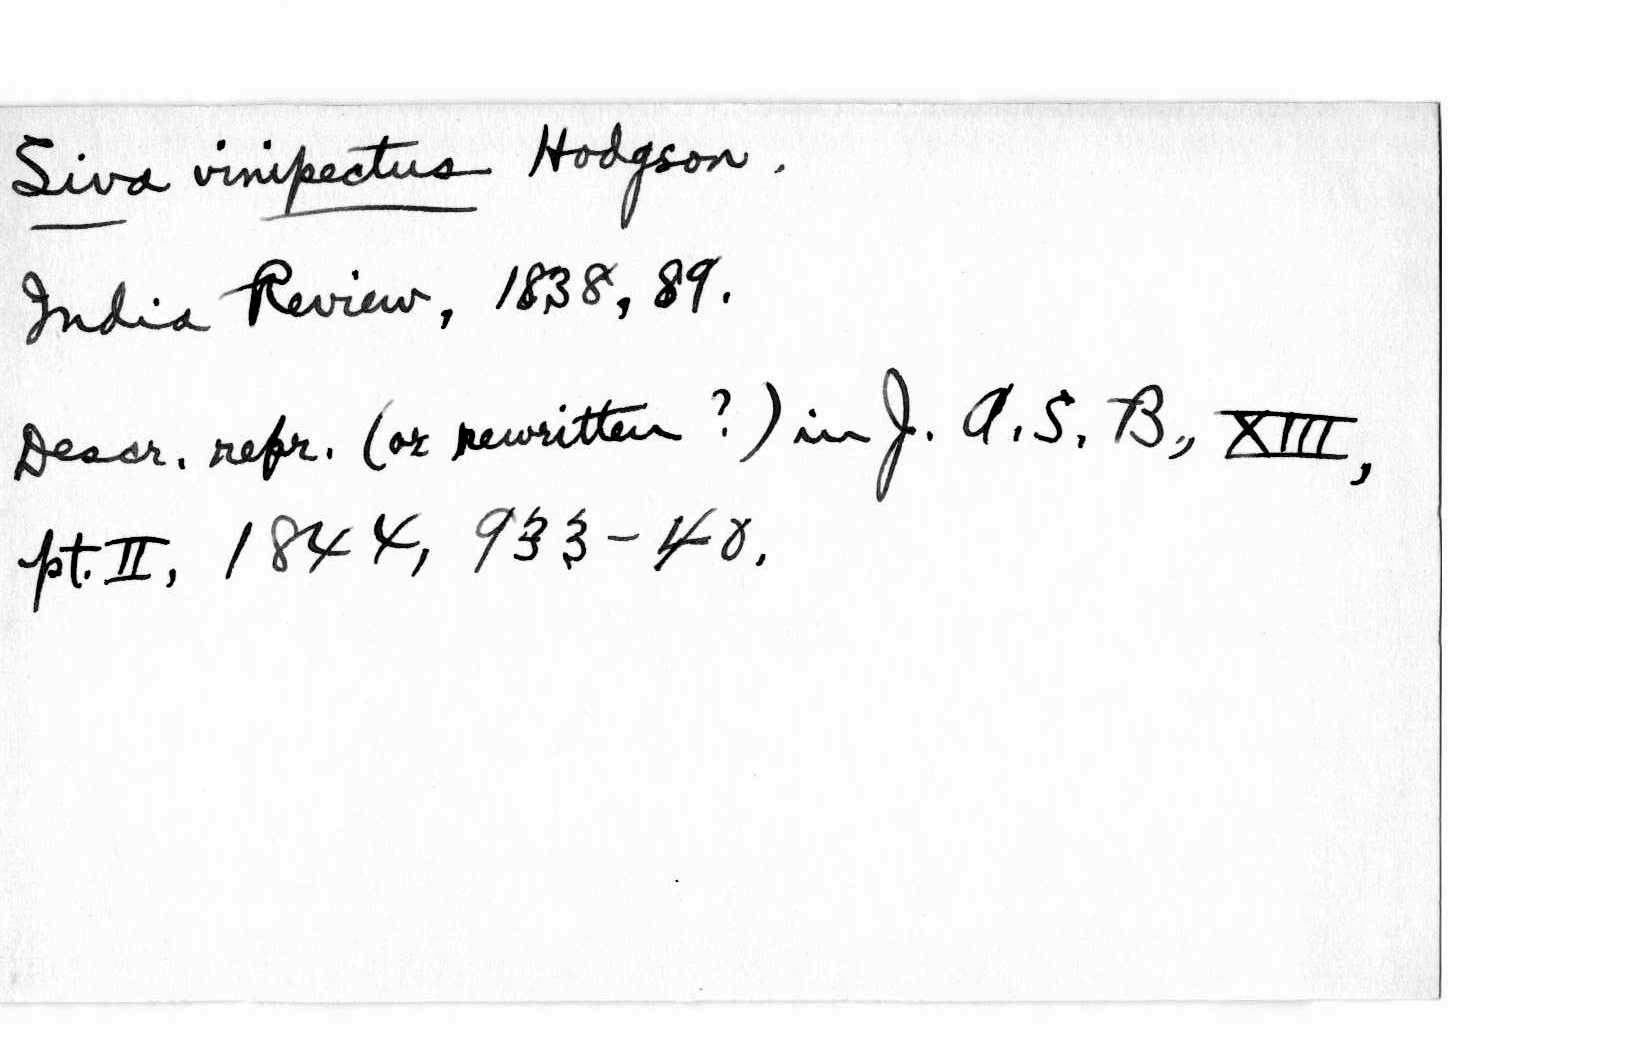 Siva vinipectus Hodgson.
India Review, 1838, 89.
Descr. repr. (or rewritten ?) in J. A. S. B., XIII,
pt. II, 1844, 933-40.